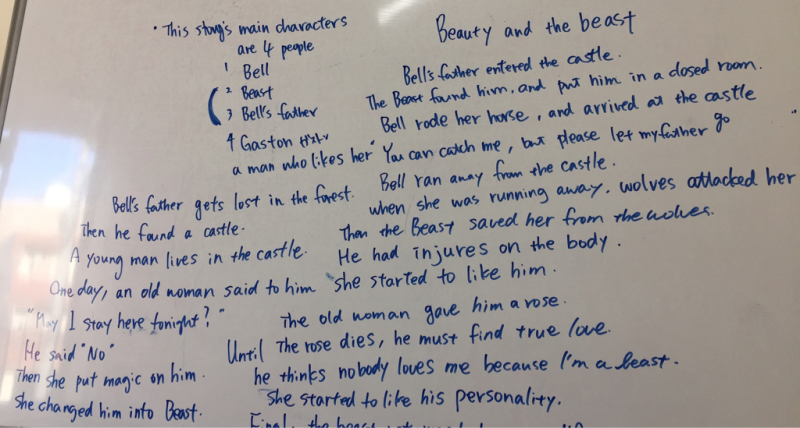 Beauty and the beast
• This story's main characters
are 4 people
1 Bell
2 Beast
3 Bell's father
4 Gaston ガストン
a man who likes her
Bell's father gets lost in the forest.
Then he found a castle.
A young man lives in the castle.
One day, an old woman said to him
"May I stay here tonight?"
He said "No"
Then she put magic on him.
She changed him into Beast.
Bell's father entered the castle.
The Beast found him, and put him in a closed room.
Bell rode her horse, and arrived at the castle
"You can catch me, but please let my father go"
Bell ran away from the castle.
when she was running away, wolves attacked her
Then the Beast saved her from the wolves.
He had injures on the body.
She started to like him.
The old woman gave him a rose.
Until The rose dies, he must find true love.
he thinks nobody loves me because I'm a beast.
She started to like his personality.